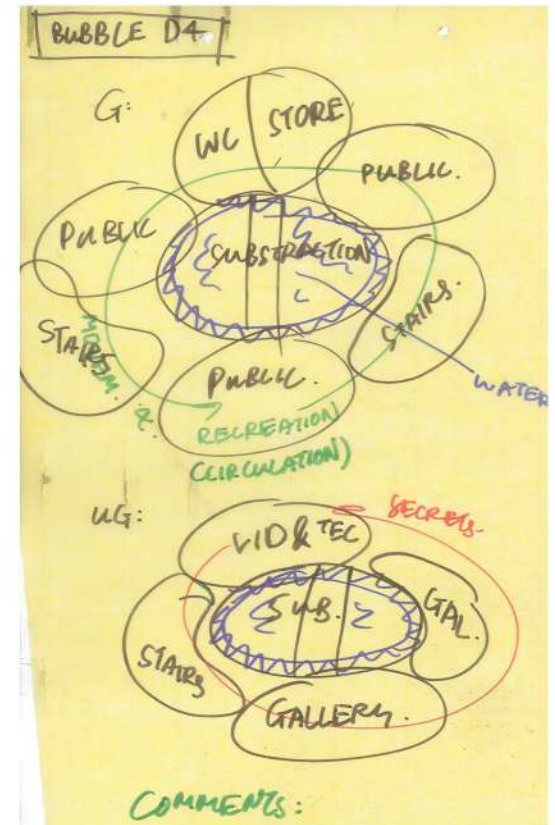 BUBBLE D4
G:
WC STORE
PUBLIC.
PUBLIC
SUBSTRACTION
STAIRS.
STAIRS
WATER
PUBLIC.
&
RECREATION
(CIRCULATION)
UG:
SECRETS.
VID & TEC
SUB.
GAL.
STAIRS
GALLERY.
COMMENTS: